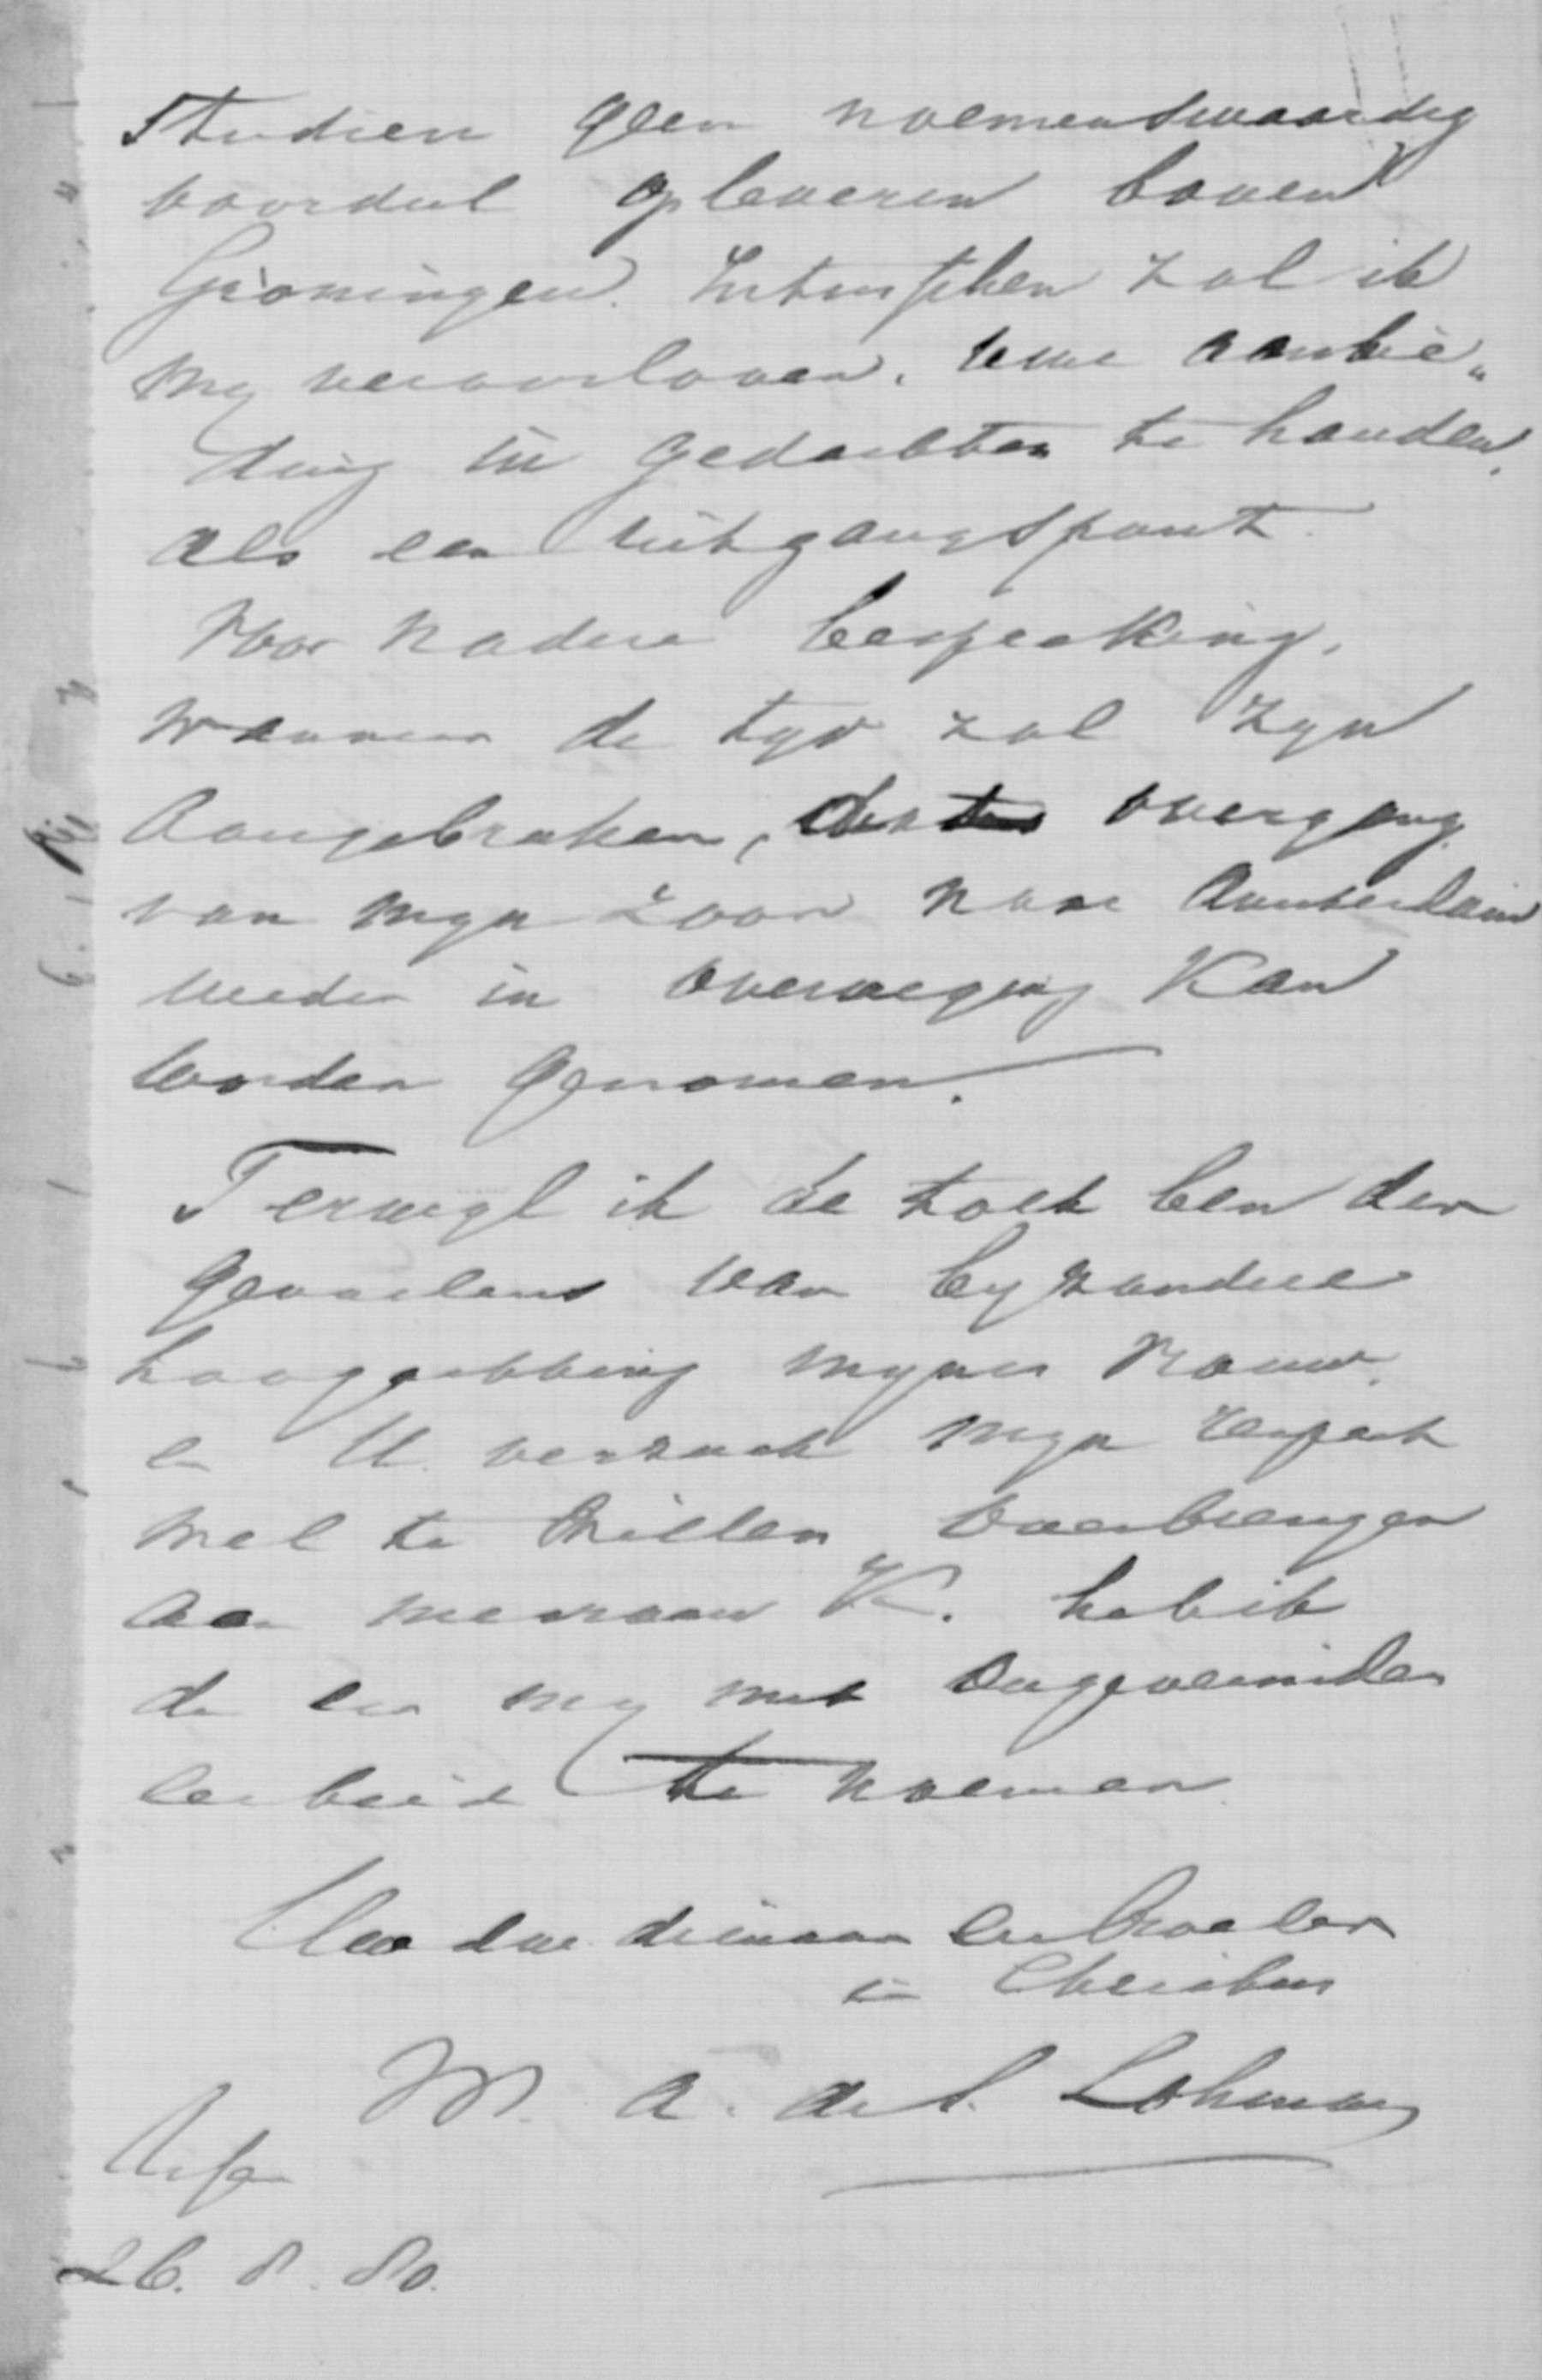 Studien geen noemenswaardig
voordeel opleveren boven
Groningen. Intusschen zal ik
my veroorloven, uwe aanbie„
ding in gedachten te houden,
als een uitgangspunt
voor nadere bespreking,
wanneer de tyd zal zyn
aangebroken, overgang
van myn zoon naar Amsterdam
weder in overweging kan
worden genomen.
Terwyl ik de tolk ben der
gevoelens van byzondere
hoogachting myner vrouw,
en U verzoek myn respect
wel te willen overbrengen
aan mevrouw K. heb ik
de eer my met ongeveinsden
eerbied te noemen
Uw dw. dienaar en broeder
in Christus
M. A. de S. Lohman
26. 8. 80.